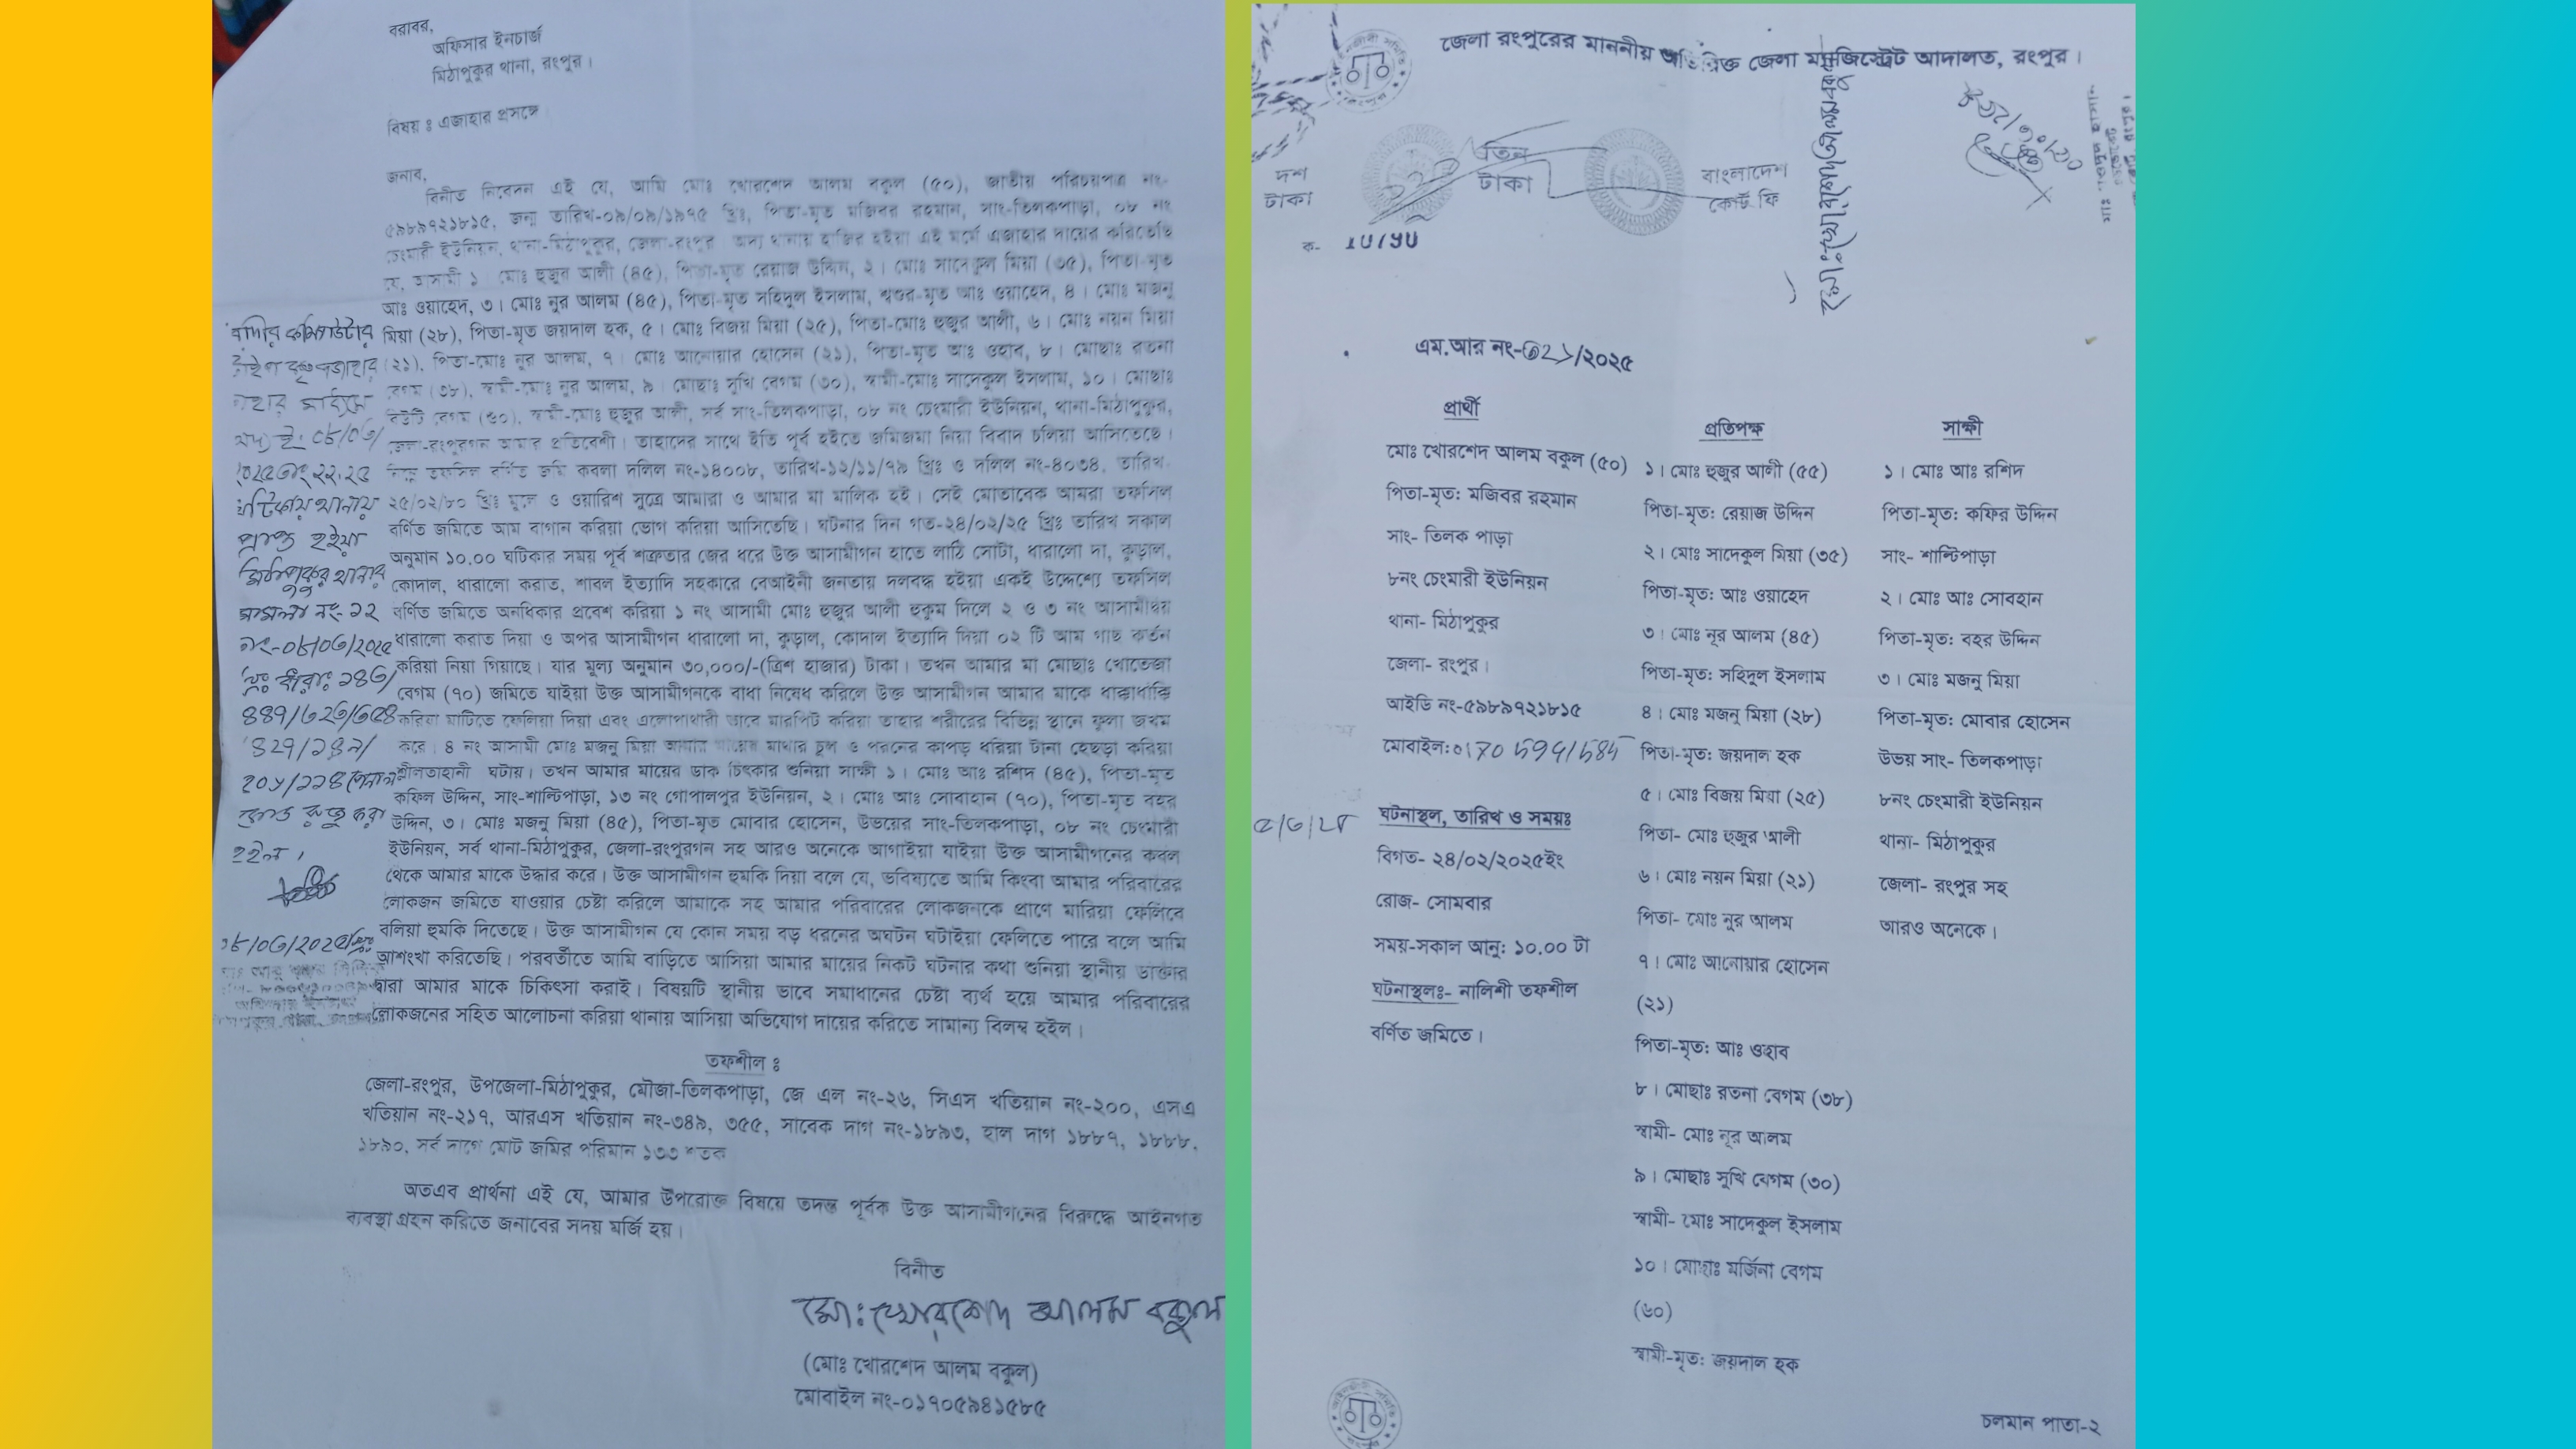 বরাবর,
অফিসার ইনচার্জ
মিঠাপুকুর থানা, রংপুর।
বিষয় ঃ এজাহার প্রসঙ্গে
জনাব,
বিনীত নিবেদন এই যে, আমি মোঃ খোরশেদ আলম বকুল (৫০), জাতীয় পরিচয়পত্র নং-
৫৯৮৯৭২১৮১৫, জন্ম তারিখ-০৯/০৯/১৯৭৫ খ্রিঃ, পিতা-মৃত মজিবর রহমান, সাং-তিলকপাড়া, ০৮ নং
চেংমারী ইউনিয়ন, থানা-মিঠাপুকুর, জেলা-রংপুর। অদ্য থানায় হাজির হইয়া এই মর্মে এজাহার দায়ের করিতেছি
যে, আসামী ১। মোঃ হুজুর আলী (৪৫), পিতা-মৃত রেয়াজ উদ্দিন, ২। মোঃ সাদেকুল মিয়া (৩৫), পিতা-মৃত
আঃ ওয়াহেদ, ৩। মোঃ নুর আলম (৪৫), পিতা-মৃত সহিদুল ইসলাম, শ্বশুর-মৃত আঃ ওয়াহেদ, ৪। মোঃ মজনু
মিয়া (২৮), পিতা-মৃত জয়দাল হক, ৫। মোঃ বিজয় মিয়া (২৫), পিতা-মোঃ হুজুর আলী, ৬। মোঃ নয়ন মিয়া
(২১), পিতা-মোঃ নুর আলম, ৭। মোঃ আনোয়ার হোসেন (২১), পিতা-মৃত আঃ ওহাব, ৮। মোছাঃ রতনা
বেগম (৩৮), স্বামী-মোঃ নুর আলম, ৯। মোছাঃ সুখি বেগম (৩০), স্বামী-মোঃ সাদেকুল ইসলাম, ১০। মোছাঃ
বিউটি বেগম (৫০), স্বামী-মোঃ হুজুর আলী, সর্ব সাং-তিলকপাড়া, ০৮ নং চেংমারী ইউনিয়ন, থানা-মিঠাপুকুর,
জেলা-রংপুরগন আমার প্রতিবেশী। তাহাদের সাথে ইতি পূর্ব হইতে জমিজমা নিয়া বিবাদ চলিয়া আসিতেছে।
নিম্ন তফসিল বর্ণিত জমি কবলা দলিল নং-১৪০০৮, তারিখ-১২/১১/৭৯ খ্রিঃ ও দলিল নং-৪০৩৪, তারিখ-
২৫/০২/৮০ খ্রিঃ মূলে ও ওয়ারিশ সূত্রে আমারা ও আমার মা মালিক হই। সেই মোতাবেক আমরা তফসিল
বর্ণিত জমিতে আম বাগান করিয়া ভোগ করিয়া আসিতেছি। ঘটনার দিন গত-২৪/০২/২৫ খ্রিঃ তারিখ সকাল
অনুমান ১০.০০ ঘটিকার সময় পূর্ব শত্রুতার জের ধরে উক্ত আসামীগন হাতে লাঠি সোটা, ধারালো দা, কুড়াল,
কোদাল, ধারালো করাত, শাবল ইত্যাদি সহকারে বেআইনী জনতায় দলবদ্ধ হইয়া একই উদ্দেশ্যে তফসিল
বর্ণিত জমিতে অনধিকার প্রবেশ করিয়া ১ নং আসামী মোঃ হুজুর আলী হুকুম দিলে ২ ও ৩ নং আসামীদ্বয়
ধারালো করাত দিয়া ও অপর আসামীগন ধারালো দা, কুড়াল, কোদাল ইত্যাদি দিয়া ০২ টি আম গাছ কর্তন
করিয়া নিয়া গিয়াছে। যার মূল্য অনুমান ৩০,০০০/-(ত্রিশ হাজার) টাকা। তখন আমার মা মোছাঃ খোতেজা
বেগম (৭০) জমিতে যাইয়া উক্ত আসামীগনকে বাধা নিষেধ করিলে উক্ত আসামীগন আমার মাকে ধাক্কাধাক্কি
করিয়া মাটিতে ফেলিয়া দিয়া এবং এলোপাথারী ভাবে মারপিট করিয়া তাহার শরীরের বিভিন্ন স্থানে ফুলা জখম
করে। ৪ নং আসামী মোঃ মজনু মিয়া আমার মায়ের মাথার চুল ও পরনের কাপড় ধরিয়া টানা হেছড়া করিয়া
শ্লীলতাহানী ঘটায়। তখন আমার মায়ের ডাক চিৎকার শুনিয়া সাক্ষী ১। মোঃ আঃ রশিদ (৪৫), পিতা-মৃত
কফিল উদ্দিন, সাং-শাল্টিপাড়া, ১৩ নং গোপালপুর ইউনিয়ন, ২। মোঃ আঃ সোবাহান (৭০), পিতা-মৃত বহর
উদ্দিন, ৩। মোঃ মজনু মিয়া (৪৫), পিতা-মৃত মোবার হোসেন, উভয়ের সাং-তিলকপাড়া, ০৮ নং চেংমারী
ইউনিয়ন, সর্ব থানা-মিঠাপুকুর, জেলা-রংপুরগন সহ আরও অনেকে আগাইয়া যাইয়া উক্ত আসামীগনের কবল
থেকে আমার মাকে উদ্ধার করে। উক্ত আসামীগন হুমকি দিয়া বলে যে, ভবিষ্যতে আমি কিংবা আমার পরিবারের
লোকজন জমিতে যাওয়ার চেষ্টা করিলে আমাকে সহ আমার পরিবারের লোকজনকে প্রাণে মারিয়া ফেলিবে
বলিয়া হুমকি দিতেছে। উক্ত আসামীগন যে কোন সময় বড় ধরনের অঘটন ঘটাইয়া ফেলিতে পারে বলে আমি
আশংখা করিতেছি। পরবর্তীতে আমি বাড়িতে আসিয়া আমার মায়ের নিকট ঘটনার কথা শুনিয়া স্থানীয় ডাক্তার
দ্বারা আমার মাকে চিকিৎসা করাই। বিষয়টি স্থানীয় ভাবে সমাধানের চেষ্টা ব্যর্থ হয়ে আমার পরিবারের
লোকজনের সহিত আলোচনা করিয়া থানায় আসিয়া অভিযোগ দায়ের করিতে সামান্য বিলম্ব হইল।
তফশীল ঃ
জেলা-রংপুর, উপজেলা-মিঠাপুকুর, মৌজা-তিলকপাড়া, জে এল নং-২৬, সিএস খতিয়ান নং-২০০, এসএ
খতিয়ান নং-২১৭, আরএস খতিয়ান নং-৩৪৯, ৩৫৫, সাবেক দাগ নং-১৮৯৩, হাল দাগ ১৮৮৭, ১৮৮৮,
১৮৯০, সর্ব দাগে মোট জমির পরিমান ১৩৩ শতক
অতএব প্রার্থনা এই যে, আমার উপরোক্ত বিষয়ে তদন্ত পূর্বক উক্ত আসামীগনের বিরুদ্ধে আইনগত
ব্যবস্থা গ্রহন করিতে জনাবের সদয় মর্জি হয়।
বিনীত
মোঃ খোরশেদ আলম বকুল
(মোঃ খোরশেদ আলম বকুল)
মোবাইল নং-০১৭০৫৯৪১৫৮৫
প্রাপ্ত হইয়া
মিঠাপুকুর থানার
মামলা নং-১২
রুজু করা
হইল।
জেলা রংপুরের মাননীয় অতিরিক্ত জেলা ম্যাজিস্ট্রেট আদালত, রংপুর।
দশ
টাকা
তিন
টাকা
বাংলাদেশ
কোর্ট ফি
মোঃ খোরশেদ আলম বকুল
এম.আর নং-৩২১/২০২৫
প্রার্থী
মোঃ খোরশেদ আলম বকুল (৫০)
পিতা-মৃত: মজিবর রহমান
সাং- তিলক পাড়া
৮নং চেংমারী ইউনিয়ন
থানা- মিঠাপুকুর
জেলা- রংপুর।
আইডি নং-৫৯৮৯৭২১৮১৫
মোবাইল:01705941585
ঘটনাস্থল, তারিখ ও সময়ঃ
বিগত- ২৪/০২/২০২৫ইং
রোজ- সোমবার
সময়-সকাল আনু: ১০.০০ টা
ঘটনাস্থলঃ- নালিশী তফশীল
বর্ণিত জমিতে।
প্রতিপক্ষ
১। মোঃ হুজুর আলী (৫৫)
পিতা-মৃত: রেয়াজ উদ্দিন
২। মোঃ সাদেকুল মিয়া (৩৫)
পিতা-মৃত: আঃ ওয়াহেদ
৩। মোঃ নূর আলম (৪৫)
পিতা-মৃত: সহিদুল ইসলাম
৪। মোঃ মজনু মিয়া (২৮)
পিতা-মৃত: জয়দাল হক
৫। মোঃ বিজয় মিয়া (২৫)
পিতা- মোঃ হুজুর আলী
৬। মোঃ নয়ন মিয়া (২১)
পিতা- মোঃ নুর আলম
৭। মোঃ আনোয়ার হোসেন
(২১)
পিতা-মৃত: আঃ ওহাব
৮। মোছাঃ রতনা বেগম (৩৮)
স্বামী- মোঃ নূর আলম
৯। মোছাঃ সুখি বেগম (৩০)
স্বামী- মোঃ সাদেকুল ইসলাম
১০। মোছাঃ মর্জিনা বেগম
(৬০)
স্বামী-মৃত: জয়দাল হক
সাক্ষী
১। মোঃ আঃ রশিদ
পিতা-মৃত: কফির উদ্দিন
সাং- শাল্টিপাড়া
২। মোঃ আঃ সোবহান
পিতা-মৃত: বহর উদ্দিন
৩। মোঃ মজনু মিয়া
পিতা-মৃত: মোবার হোসেন
উভয় সাং- তিলকপাড়া
৮নং চেংমারী ইউনিয়ন
থানা- মিঠাপুকুর
জেলা- রংপুর সহ
আরও অনেকে।
চলমান পাতা-২